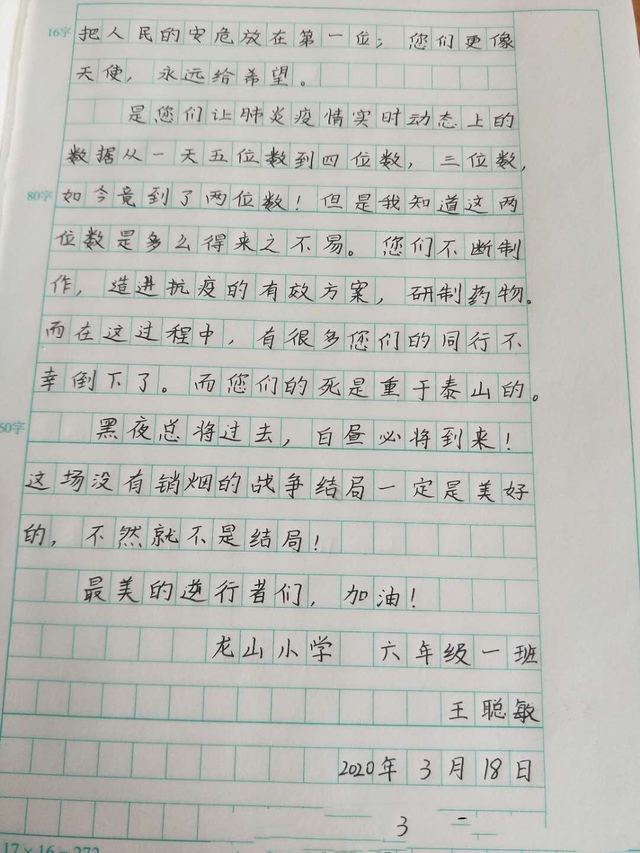 16字 把人民的安危放在第一位；您们更像
天使，永远给希望。
是您们让肺炎疫情实时动态上的
数据从一天五位数到四位数，三位数，
80字 如今竟到了两位数！但是我知道这两
位数是多么得来之不易。您们不断制
作，造进抗疫的有效方案，研制药物。
而在这过程中，有很多您们的同行不
幸倒下了。而您们的死是重于泰山的。
60字 黑夜总将过去，白昼必将到来！
这场没有销烟的战争结局一定是美好
的，不然就不是结局！
最美的逆行者们，加油！
龙山小学 六年级一班
王聪敏
2020年3月18日
3
17×16=272